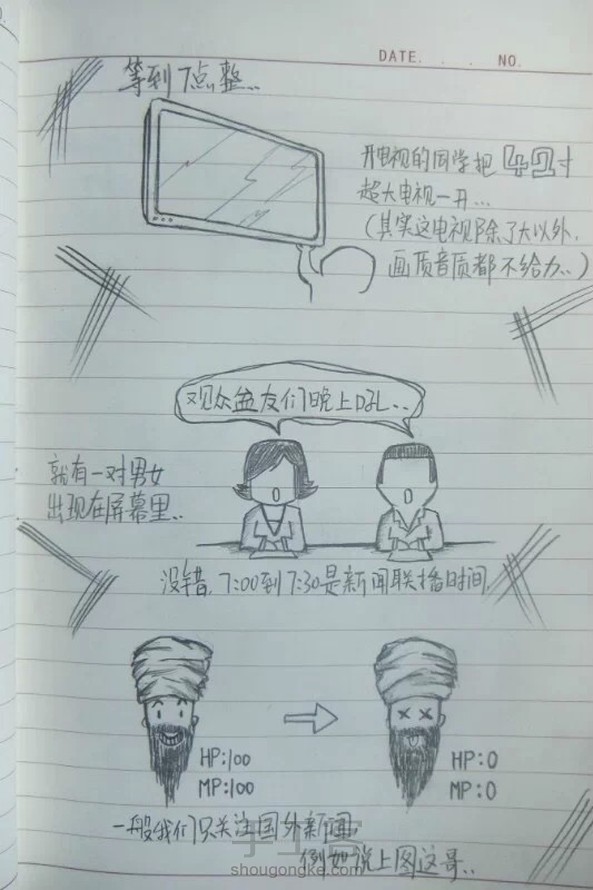 DATE. . . NO.
等到7点整..
开电视的同学把42寸
超大电视一开...
(其实这电视除了大以外,
画质音质都不给力..)
观众盆友们晚上好..
就有一对男女
出现在屏幕里..
没错,7:00到7:30是新闻联播时间
HP:100
MP:100
HP:0
MP:0
一般我们只关注国外新闻,
例如说上图这哥..
shougongke.com